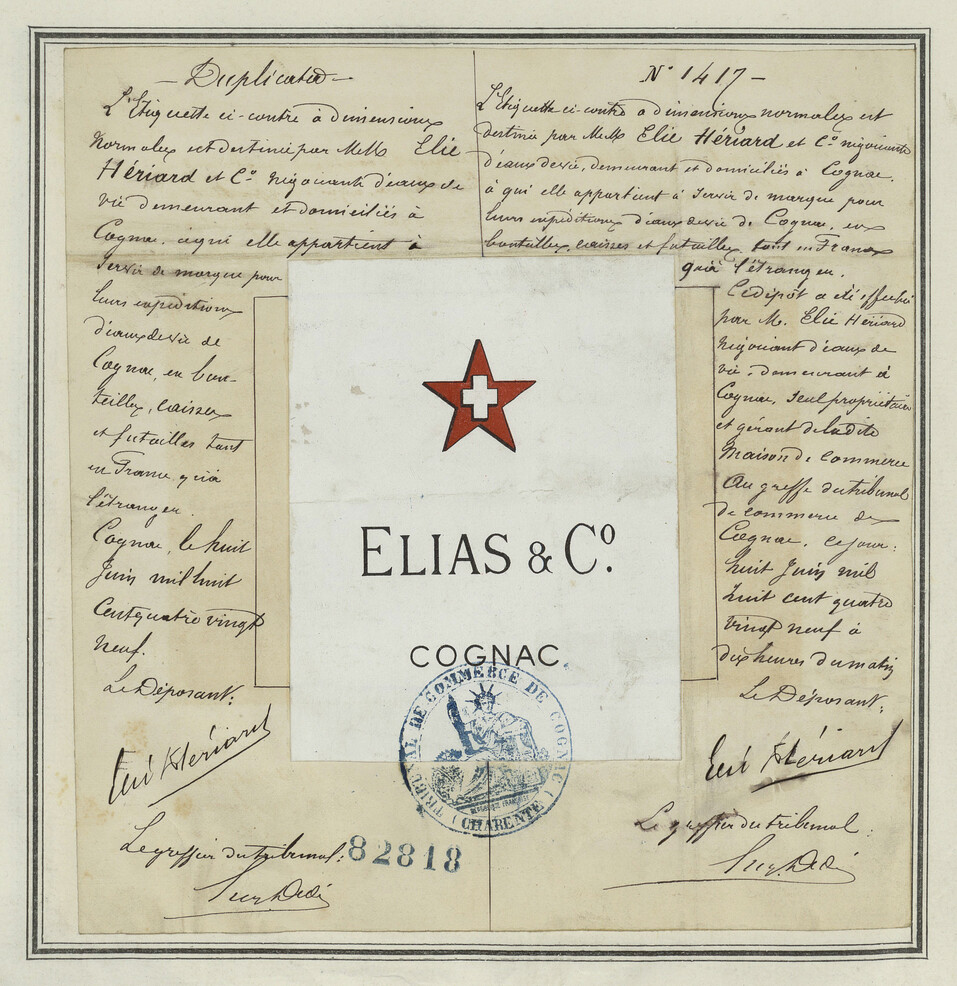 Duplicata
L'Etiquette ci-contre à dimensions
normales est destinée par MM. Elie
Hériard et Cº négociants d'eaux de
vie demeurant et domiciliés à
Cognac, à qui elle appartient à
servir de marque pour
leurs expéditions
d'eaux de vie de
Cognac, en bou-
teilles, caisses
et futailles tant
en France, qu'à
l'étranger.
Cognac, le huit
Juin mil huit
cent quatre vingt
neuf.
Le Déposant:
Elie Hériard
Le greffier du tribunal:
82818
Nº 1417
L'Etiquette ci-contre à dimensions normales est
destinée par MM. Elie Hériard et Cº négociants
d'eaux de vie, demeurant et domiciliés à Cognac,
à qui elle appartient à servir de marque pour
leurs expéditions d'eaux de vie de Cognac, en
bouteilles, caisses et futailles tant en France
qu'à l'étranger.
Le dépôt a été effectué
par M. Elie Hériard
négociant d'eaux de
vie, demeurant à
Cognac, seul propriétaire
et gérant de la dite
Maison de commerce
Au greffe du tribunal
de commerce de
Cognac, ce jour:
huit Juin mil
huit cent quatre
vingt neuf à
dix heures du matin
Le Déposant:
Elie Hériard
Le greffier du tribunal:
ELIAS & Cº.
COGNAC
TRIBUNAL DE COMMERCE DE COGNAC
(CHARENTE)
REPUBLIQUE FRANÇAISE